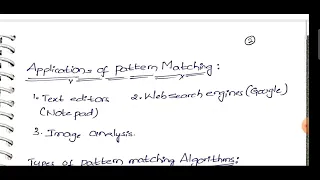 ②
Applications of pattern Matching:
1. Text editors 2. Web search engines (Google)
(Notepad)
3. Image analysis.
Types of pattern matching Algorithms: